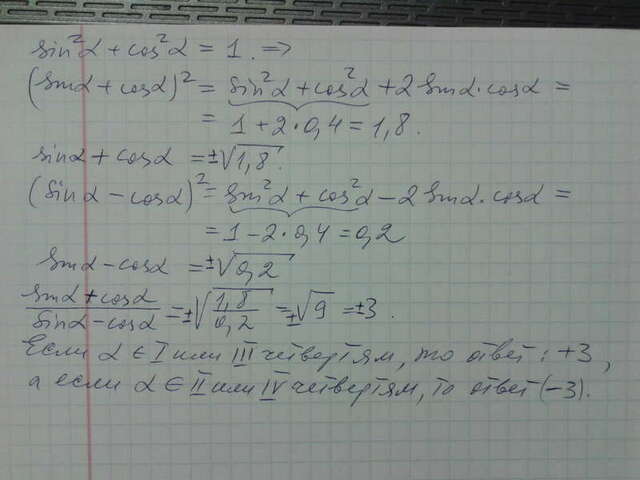 sin²α + cos²α = 1. =>
(sinα + cosα)² = sin²α + cos²α + 2 sinα·cosα =
= 1 + 2·0,4 = 1,8.
sinα + cosα = ±√1,8.
(sinα - cosα)² = sin²α + cos²α - 2 sinα·cosα =
= 1 - 2·0,4 = 0,2
sinα - cosα = ±√0,2
(sinα + cosα)/(sinα - cosα) = ±√(1,8/0,2) = ±√9 = ±3.
Если α ∈ I или III четвертям, то ответ: +3,
а если α ∈ II или IV четвертям, то ответ (-3).